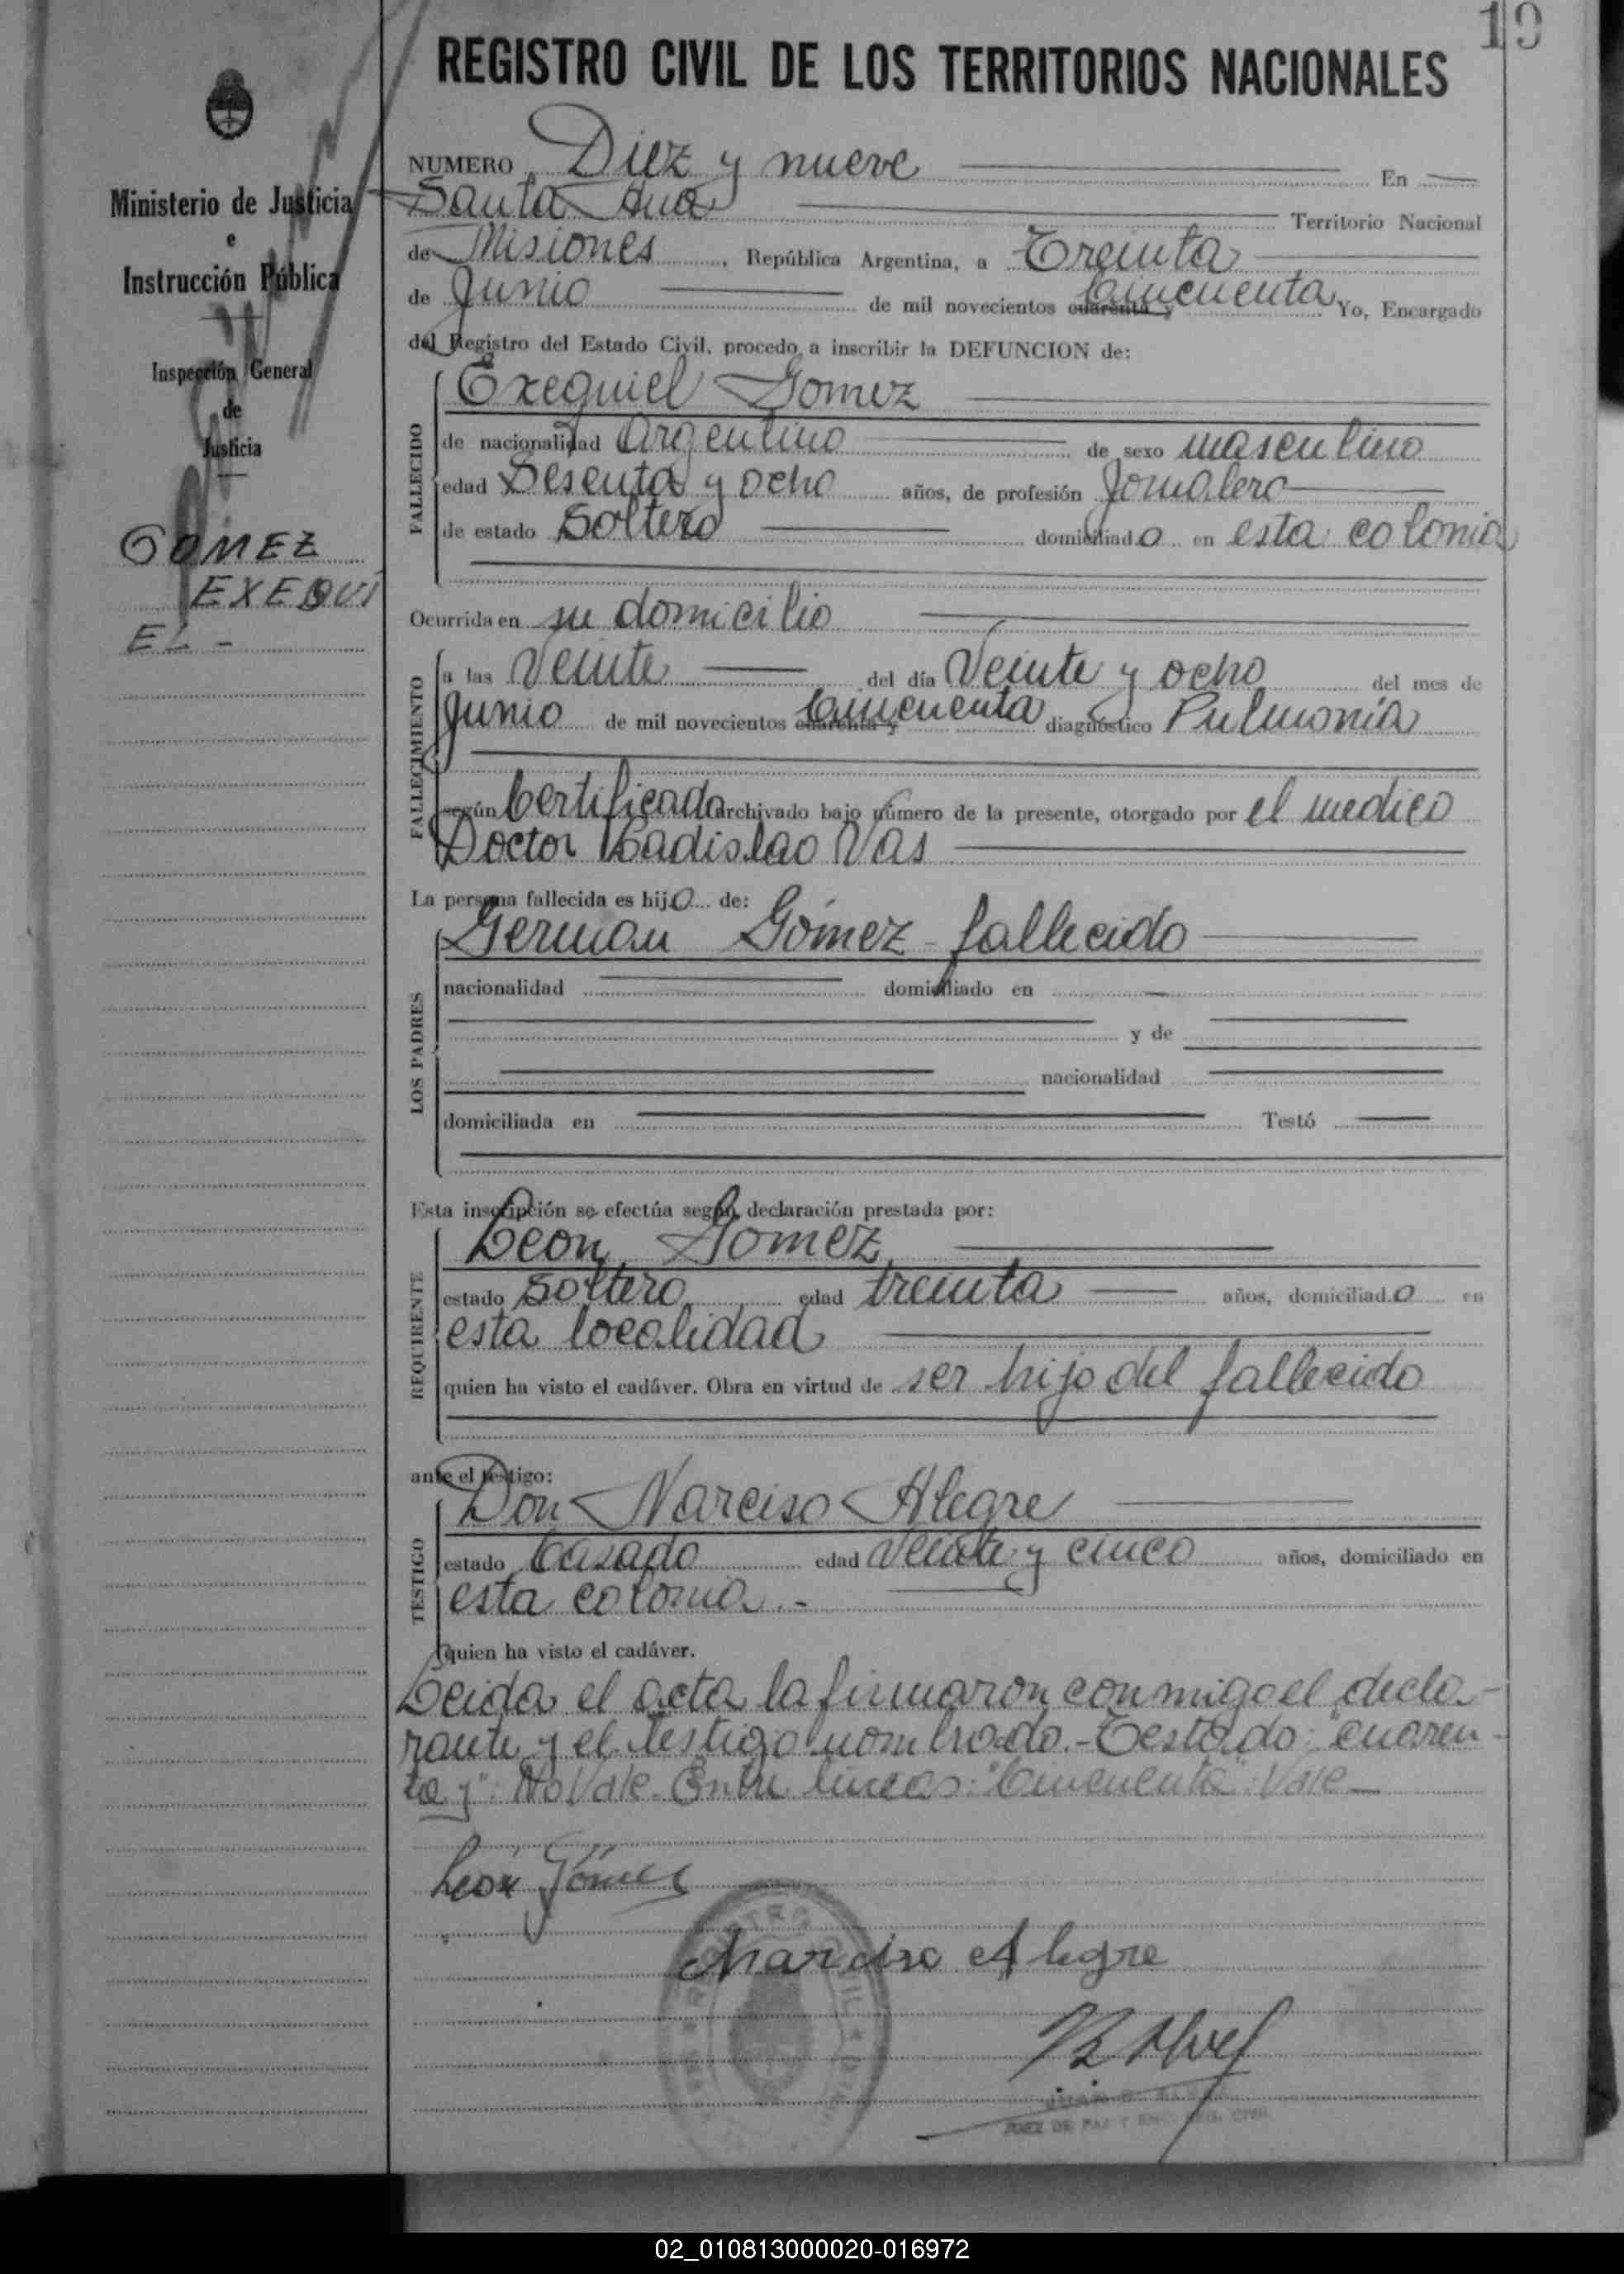 19
REGISTRO CIVIL DE LOS TERRITORIOS NACIONALES
Ministerio de Justicia
e
Instrucción Pública
Inspección General
de
Justicia
GOMEZ
EXEQUI
EL -
NUMERO Diez y nueve En
Santa Ana Territorio Nacional
de Misiones, República Argentina, a Treinta
de Junio de mil novecientos cuarenta y Cincuenta Yo, Encargado
del Registro del Estado Civil, procedo a inscribir la DEFUNCION de:
FALLECIDO
Exequiel Gomez
de nacionalidad Argentino de sexo masculino
edad Sesenta y ocho años, de profesión Jornalero
de estado Soltero domiciliado en esta colonia
Ocurrida en su domicilio
FALLECIMIENTO
a las Veinte del día Veinte y ocho del mes de
Junio de mil novecientos cuarenta y Cincuenta diagnóstico Pulmonía
según Certificado archivado bajo número de la presente, otorgado por el medico
Doctor Ladislao Vas
La persona fallecida es hijo de:
LOS PADRES
German Gómez - fallecido
nacionalidad domiciliado en
y de
nacionalidad
domiciliada en Testó
Esta inscripción se efectúa según declaración prestada por:
REQUIRENTE
Leon Gomez
estado Soltero edad treinta años, domiciliado en
esta localidad
quien ha visto el cadáver. Obra en virtud de ser hijo del fallecido
ante el testigo:
TESTIGO
Don Narciso Alegre
estado Casado edad Veinte y cinco años, domiciliado en
esta colonia.-
quien ha visto el cadáver.
Leida el acta la firmaron conmigo el decla-
rante y el testigo nombrado.- Testado: "cuaren-
ta y": No Vale. Entre lineas: "Cincuenta": Vale
León Gómez
Narciso Alegre
JUEZ DE PAZ Y ENC. REG. CIVIL
02_010813000020-016972